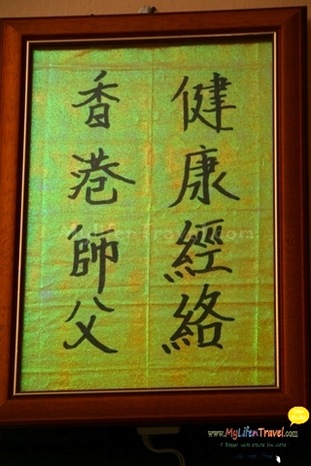 健康經絡
香港師父
MyLifenTravel.com
www.MyLifenTravel.com